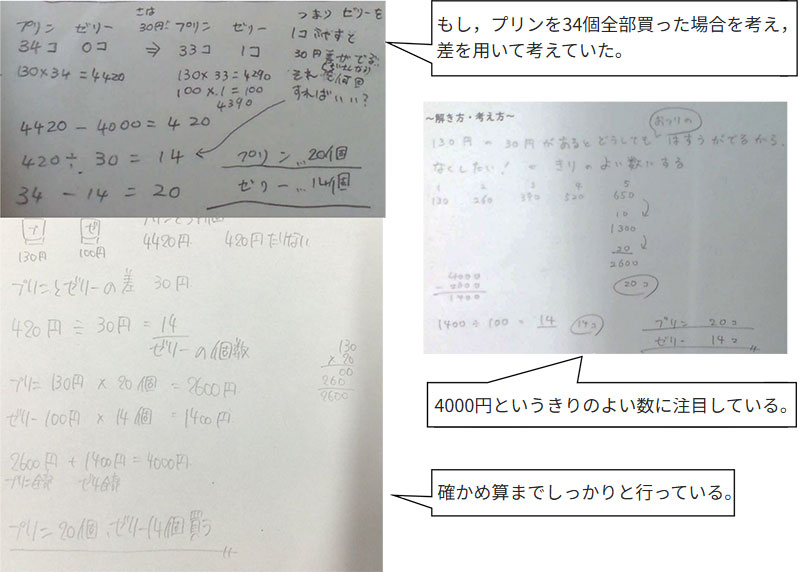 プリン ゼリー
34コ 0コ
130×34=4420
さは
30円
⇒
プリン ゼリー
33コ 1コ
130×33=4290
100×1=100
4390
つまり ゼリーを
1コふやすと
30円差がでる
それを何回
すればいい?
4420-4000=420
420÷30=14
34-14=20
プリン…20個
ゼリー…14個
もし，プリンを34個全部買った場合を考え，
差を用いて考えていた。
プ ゼ
130円 100円
4420円 420円たりない
プリンとゼリーの差 30円
420円÷30円=14
ゼリーの個数
130
×20
00
260
2600
プリン130円×20個=2600円
ゼリー100円×14個=1400円
2600円+1400円=4000円
プリン20個、ゼリー14個買う
～解き方・考え方～
おつりの
130円の30円があるとどうしてもはすうがでるから、
なくしたい! ← きりのよい数にする
1 2 3 4 5
130 260 390 520 650
10
1300
20
2600
20コ
4000
-2600
1400
1400÷100=14 14コ
プリン 20コ
ゼリー 14コ
4000円というきりのよい数に注目している。
確かめ算までしっかりと行っている。